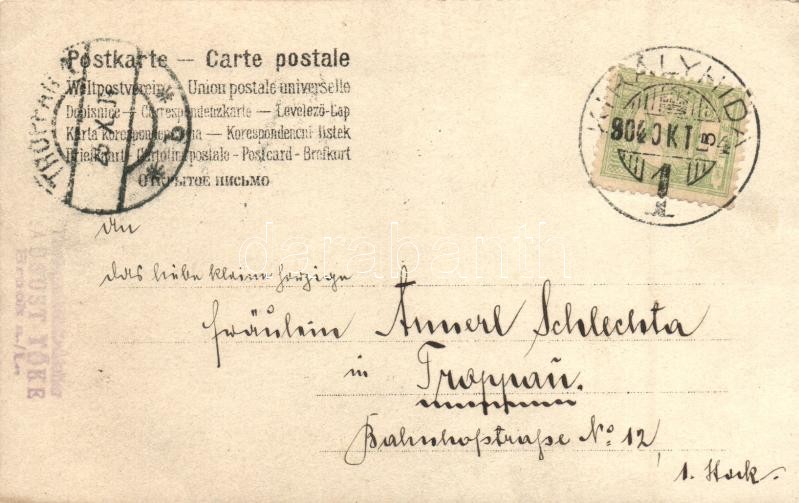 Postkarte — Carte postale
Weltpostverein - Union postale universelle
Dopisnice — Correspondenzkarte — Levelező-Lap
Karta korespondencyjna — Korespondenčni listek
Briefkarte - Cartolina postale - Postcard - Brefkort
ОТКРЫТОЕ ПИСЬМО
TROPPAU
KIRÁLYHIDA
904 OKT
B
1
An
das liebe kleine herzige
Fräulein Annerl Schlechta
in Troppau.
Bahnhofstraße No 12
1. Stock.
AUGUST TÖKE
Bruck a/L.
darabanth